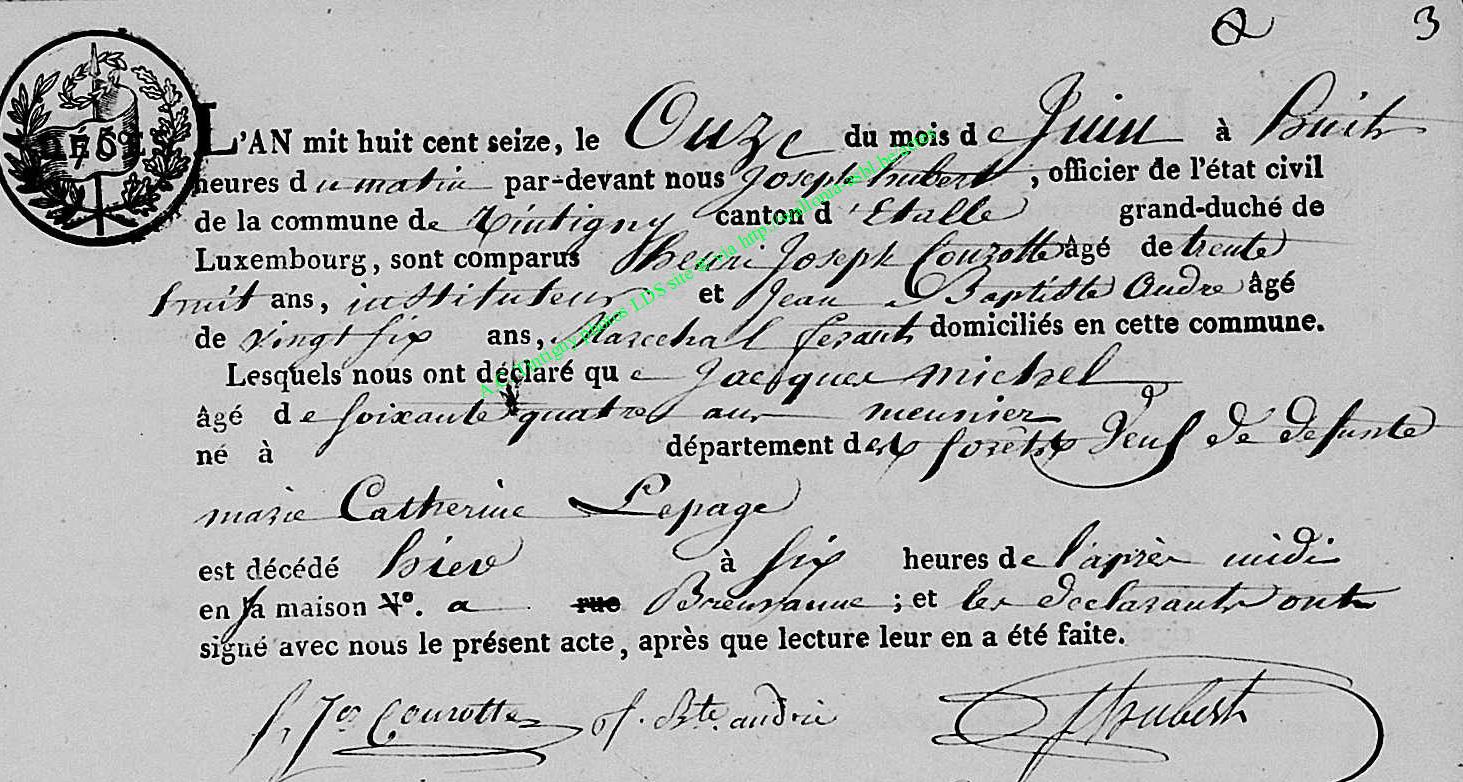 2 3
L'AN mil huit cent seize, le Onze du mois de Juin à huit
heures du matin par-devant nous Joseph hubert, officier de l'état civil
de la commune de Tintigny canton d'Etalle grand-duché de
Luxembourg, sont comparus henri Joseph Courotte âgé de trente
huit ans, instituteur et Jean Baptiste Andre âgé
de vingt six ans, Marechal ferant domiciliés en cette commune.
Lesquels nous ont déclaré que Jacques michel
âgé de soixante quatre ans meunier
né à département des forêts veuf de defunte
marie Catherine Lepage
est décédé hier à six heures de l'après midi
en sa maison N°. a rue Breuvanne ; et les declarants ont
signé avec nous le présent acte, après que lecture leur en a été faite.
h. Jos Courotte J. Bte. andrie JHubert
A.C. Tintigny photos LDS site © via http://wallonia-asbl.be